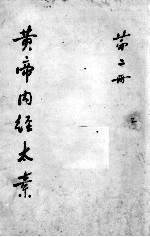 黄帝内经太素
第二册